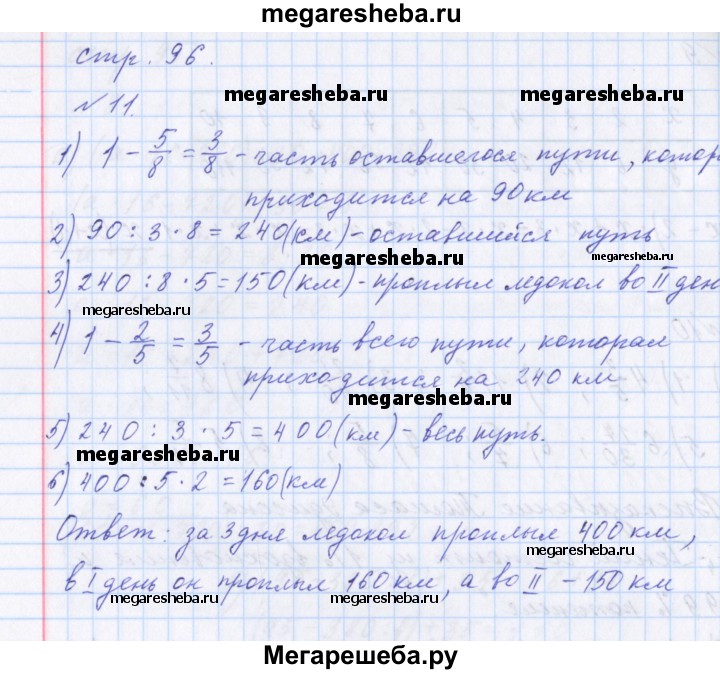 megaresheba.ru
стр. 96.
megaresheba.ru
№ 11.
megaresheba.ru
1) 1 - 5/8 = 3/8 - часть оставшегося пути, котор
приходится на 90 км
megaresheba.ru
2) 90 : 3 · 8 = 240 (км) - оставшийся путь
megaresheba.ru
3) 240 : 8 · 5 = 150 (км) - проплыл ледокол во II ден
megaresheba.ru
4) 1 - 2/5 = 3/5 - часть всего пути, которая
приходится на 240 км
megaresheba.ru
5) 240 : 3 · 5 = 400 (км) - весь путь.
megaresheba.ru
megaresheba.ru
6) 400 : 5 · 2 = 160 (км)
megaresheba.ru
Ответ: за 3 дня ледокол проплыл 400 км,
megaresheba.ru
в I день он проплыл 160 км, а во II - 150 км
megaresheba.ru
megaresheba.ru
Мегарешеба.ру